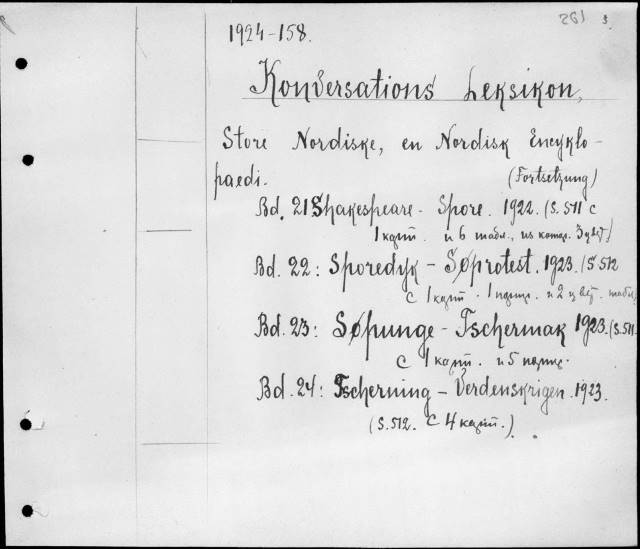 1924-158.
Konversations Leksikon,
Store Nordiske, en Nordisk Encyklo-
paedi. (Fortsetzung)
Bd. 21 Shakespeare - Spore. 1922. (S. 511 с
1 карт. и 6 табл., из котор. 3 цвет.)
Bd. 22: Sporedyk - Søprotest. 1923. (S. 512
с 1 карт. 1 и 2 цвет. табл.
Bd. 23: Søpunge - Tschermak 1923. (S. 511
с 1 карт. и 5
Bd. 24: Tscherning - Verdenskrigen. 1923.
(S. 512. С 4 карт.).